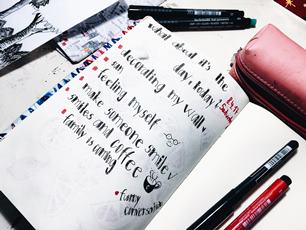 what about it's the
day, today?
decorating my wall
sun
feeling myself
make someone smile
smiles and coffee
family is coming
funny
conversation